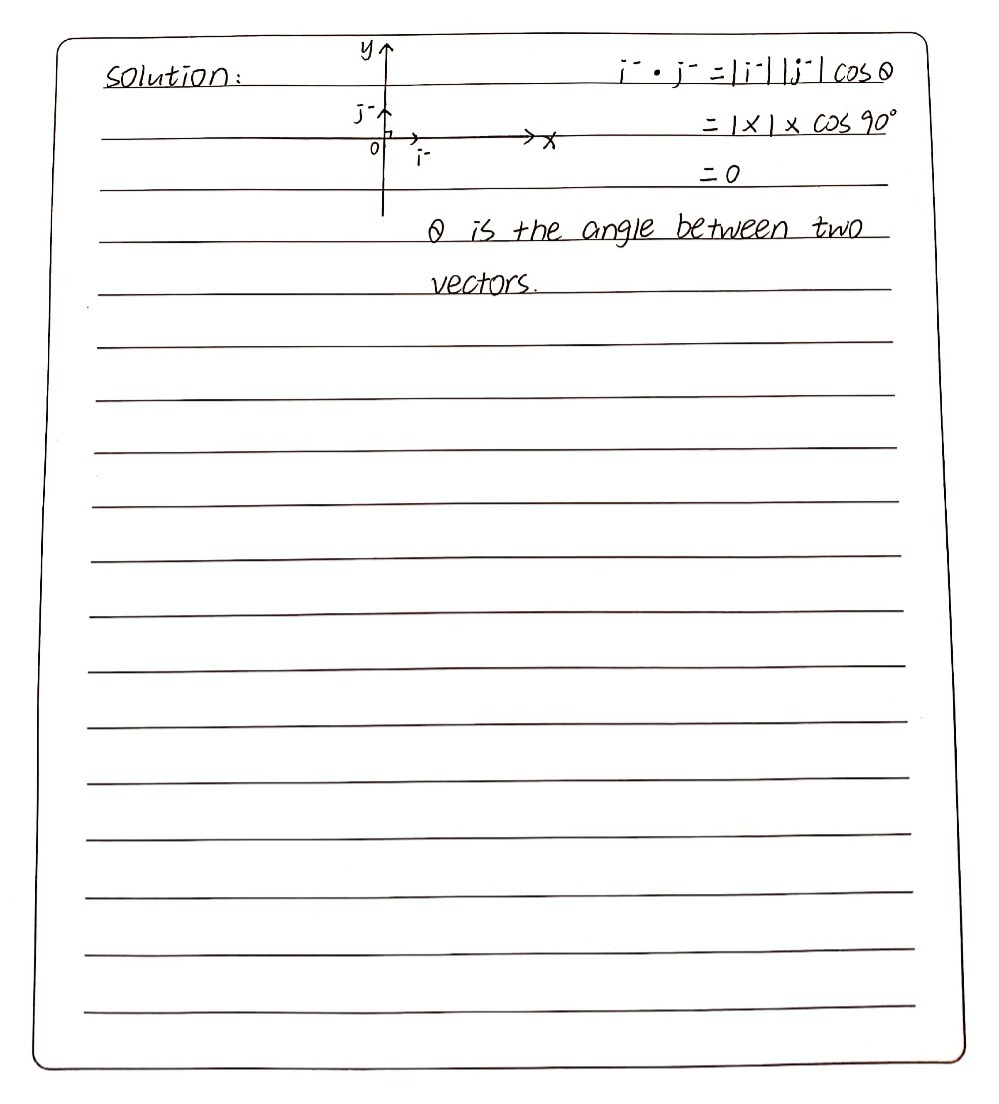 solution:
y
j⁻
0
i⁻
x
i⁻ · j⁻ = |i⁻| |j⁻| cos θ
= 1 × 1 × cos 90°
= 0
θ is the angle between two
vectors.